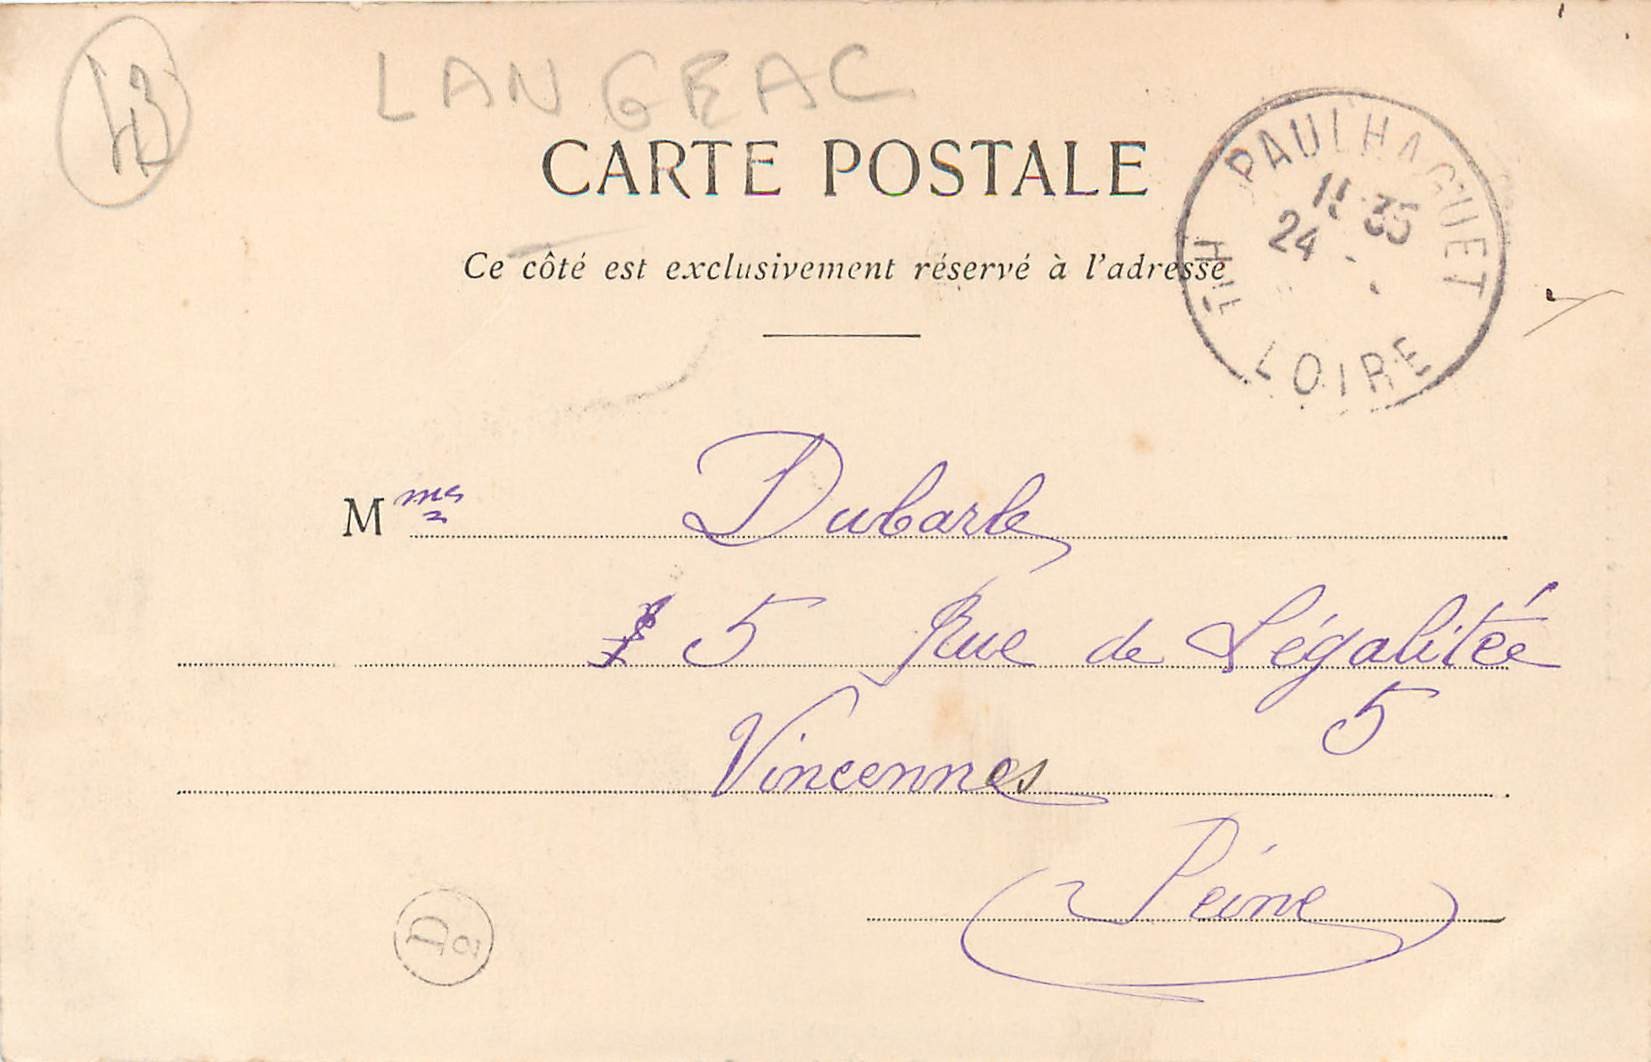 43
LANGEAC
CARTE POSTALE
Ce côté est exclusivement réservé à l'adresse
PAULHAGUET
11 35
24
HTE LOIRE
Mme Dubarle
5 Rue de Légalitée
5
Vincennes
(Seine)
D2